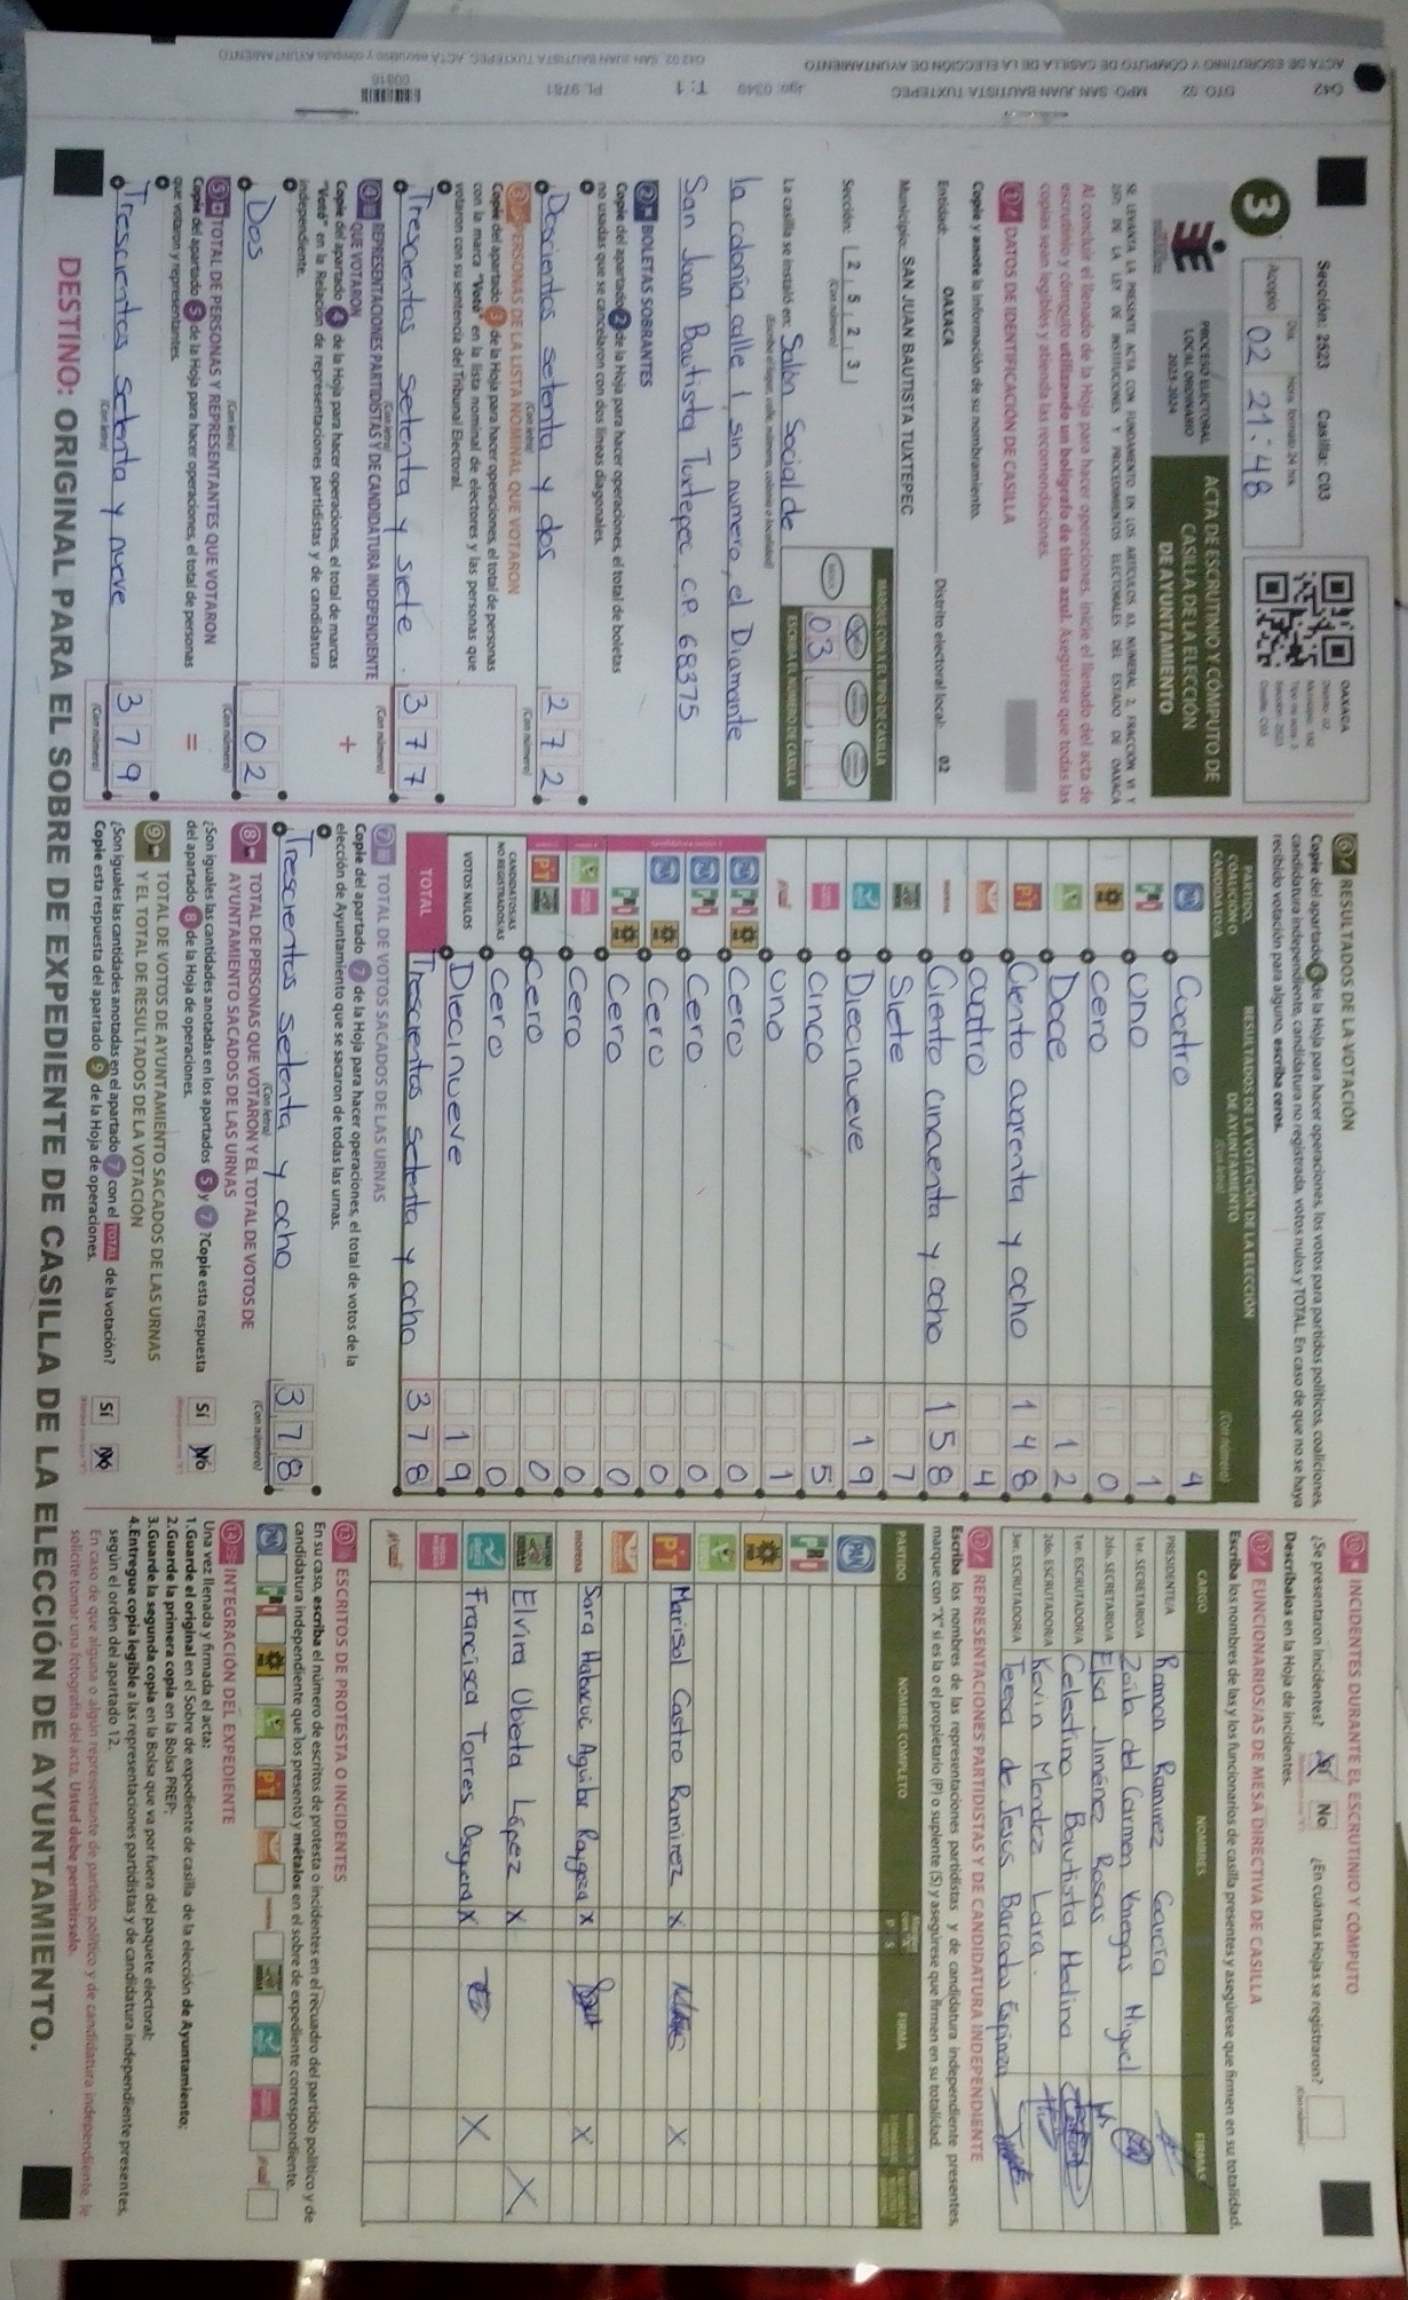 042 DTO 02 MPO SAN JUAN BAUTISTA TUXTEPEC Jgo: 0349 T: 1 PL 9781
ACTA DE ESCRUTINIO Y CÓMPUTO DE CASILLA DE LA ELECCIÓN DE AYUNTAMIENTO
Sección: 2523 Casilla: C03
3
Acopio
Día
Hora formato 24 hrs
02 21:48
OAXACA
PROCESO ELECTORAL
LOCAL ORDINARIO
2023-2024
ACTA DE ESCRUTINIO Y CÓMPUTO DE
CASILLA DE LA ELECCIÓN
DE AYUNTAMIENTO
SE LEVANTA LA PRESENTE ACTA CON FUNDAMENTO EN LOS ARTÍCULOS 83, NUMERAL 2, FRACCIÓN VI Y
DE LA LEY DE INSTITUCIONES Y PROCEDIMIENTOS ELECTORALES DEL ESTADO DE OAXACA
Al concluir el llenado de la Hoja para hacer operaciones, inicie el llenado del acta de
escrutinio y cómputo utilizando un bolígrafo de tinta azul. Asegúrese que todas las
copias sean legibles y atienda las recomendaciones.
1 DATOS DE IDENTIFICACIÓN DE CASILLA
Copie y anote la información de su nombramiento.
Entidad: OAXACA Distrito electoral local: 02
Municipio: SAN JUAN BAUTISTA TUXTEPEC
Sección: 2 5 2 3
(Con número)
MARQUE CON X EL TIPO DE CASILLA
03
ESCRIBA EL NÚMERO DE CASILLA
La casilla se instaló en: Salón Social de
(Escriba el lugar, calle, número, colonia o localidad)
la colonia, calle 1, sin numero, el Diamante
San Juan Bautista Tuxtepec C.P. 68375
2 BOLETAS SOBRANTES
Copie del apartado 2 de la Hoja para hacer operaciones, el total de boletas
no usadas que se cancelaron con dos líneas diagonales.
Doscientos setenta y dos 272
(Con letra) (Con número)
3 PERSONAS DE LA LISTA NOMINAL QUE VOTARON
Copie del apartado 3 de la Hoja para hacer operaciones, el total de personas
con la marca "Votó" en la lista nominal de electores y las personas que
votaron con su sentencia del Tribunal Electoral.
Trescientos setenta y siete. 377
(Con letra) (Con número)
4 REPRESENTACIONES PARTIDISTAS Y DE CANDIDATURA INDEPENDIENTE
QUE VOTARON
Copie del apartado 4 de la Hoja para hacer operaciones, el total de marcas
"Votó" en la Relación de representaciones partidistas y de candidatura
independiente.
+
Dos 02
(Con letra) (Con número)
5 TOTAL DE PERSONAS Y REPRESENTANTES QUE VOTARON
Copie del apartado 5 de la Hoja para hacer operaciones, el total de personas
que votaron y representantes.
=
Trescientos setenta y nueve 379
(Con letra) (Con número)
6 RESULTADOS DE LA VOTACIÓN
Copie del apartado 6 de la Hoja para hacer operaciones, los votos para partidos políticos, coaliciones,
candidatura independiente, candidatura no registrada, votos nulos y TOTAL. En caso de que no se haya
recibido votación para alguno, escriba ceros.
PARTIDO, COALICIÓN O CANDIDATO/A
RESULTADOS DE LA VOTACIÓN DE LA ELECCIÓN DE AYUNTAMIENTO
(Con letra) (Con número)
PAN Cuatro 4
PRI uno 1
cero 0
Doce 12
PT Ciento cuarenta y ocho 148
cuatro 4
morena Ciento cincuenta y ocho 158
Siete 7
Diecinueve 19
cinco 5
uno 1
PAN PRI PRD Cero 0
PAN PRI Cero 0
PAN PRD Cero 0
PRI PRD Cero 0
Cero 0
PT Cero 0
CANDIDATOS/AS NO REGISTRADOS/AS Cero 0
VOTOS NULOS Diecinueve 19
TOTAL Trescientos setenta y ocho 378
7 TOTAL DE VOTOS SACADOS DE LAS URNAS
Copie del apartado 7 de la Hoja para hacer operaciones, el total de votos de la
elección de Ayuntamiento que se sacaron de todas las urnas.
Trescientos setenta y ocho 378
(Con letra) (Con número)
8 TOTAL DE PERSONAS QUE VOTARON Y EL TOTAL DE VOTOS DE
AYUNTAMIENTO SACADOS DE LAS URNAS
¿Son iguales las cantidades anotadas en los apartados 5 y 7? Copie esta respuesta
del apartado 8 de la Hoja de operaciones.
Sí No
9 TOTAL DE VOTOS DE AYUNTAMIENTO SACADOS DE LAS URNAS
Y EL TOTAL DE RESULTADOS DE LA VOTACIÓN
¿Son iguales las cantidades anotadas en el apartado 7 con el TOTAL de la votación?
Copie esta respuesta del apartado 9 de la Hoja de operaciones.
Sí No
10 INCIDENTES DURANTE EL ESCRUTINIO Y CÓMPUTO
¿Se presentaron incidentes? Sí No ¿En cuántas Hojas se registraron?
Descríbalos en la Hoja de incidentes.
11 FUNCIONARIOS/AS DE MESA DIRECTIVA DE CASILLA
Escriba los nombres de las y los funcionarios de casilla presentes y asegúrese que firmen en su totalidad.
CARGO NOMBRES FIRMAS
PRESIDENTE/A Ramon Ramirez Garcia
1er. SECRETARIO/A Zoila del Carmen Venegas Miguel
2do. SECRETARIO/A Elsa Jiménez Rosas
1er. ESCRUTADOR/A Celestino Bautista Medina
2do. ESCRUTADOR/A Kevin Mendez Lara.
3er. ESCRUTADOR/A Teresa de Jesus Barradas Espinoza
12 REPRESENTACIONES PARTIDISTAS Y DE CANDIDATURA INDEPENDIENTE
Escriba los nombres de las representaciones partidistas y de candidatura independiente presentes,
marque con "X" si es la o el propietario (P) o suplente (S) y asegúrese que firmen en su totalidad.
PARTIDO NOMBRE COMPLETO P S FIRMA
PAN
PRI
PT Marisol Castro Ramirez X X
morena Sara Habacuc Aguilar Raygoza X X
Elvira Ubieta López X X
Francisca Torres X X
13 ESCRITOS DE PROTESTA O INCIDENTES
En su caso, escriba el número de escritos de protesta o incidentes en el recuadro del partido político y de
candidatura independiente que los presentó y métalos en el sobre de expediente correspondiente.
14 INTEGRACIÓN DEL EXPEDIENTE
Una vez llenada y firmada el acta:
1.Guarde el original en el Sobre de expediente de casilla de la elección de Ayuntamiento;
2.Guarde la primera copia en la Bolsa PREP;
3.Guarde la segunda copia en la Bolsa que va por fuera del paquete electoral;
4.Entregue copia legible a las representaciones partidistas y de candidatura independiente presentes,
según el orden del apartado 12.
En caso de que alguna o algún representante de partido político y de candidatura independiente, le
solicite tomar una fotografía del acta, Usted debe permitírselo.
DESTINO: ORIGINAL PARA EL SOBRE DE EXPEDIENTE DE CASILLA DE LA ELECCIÓN DE AYUNTAMIENTO.